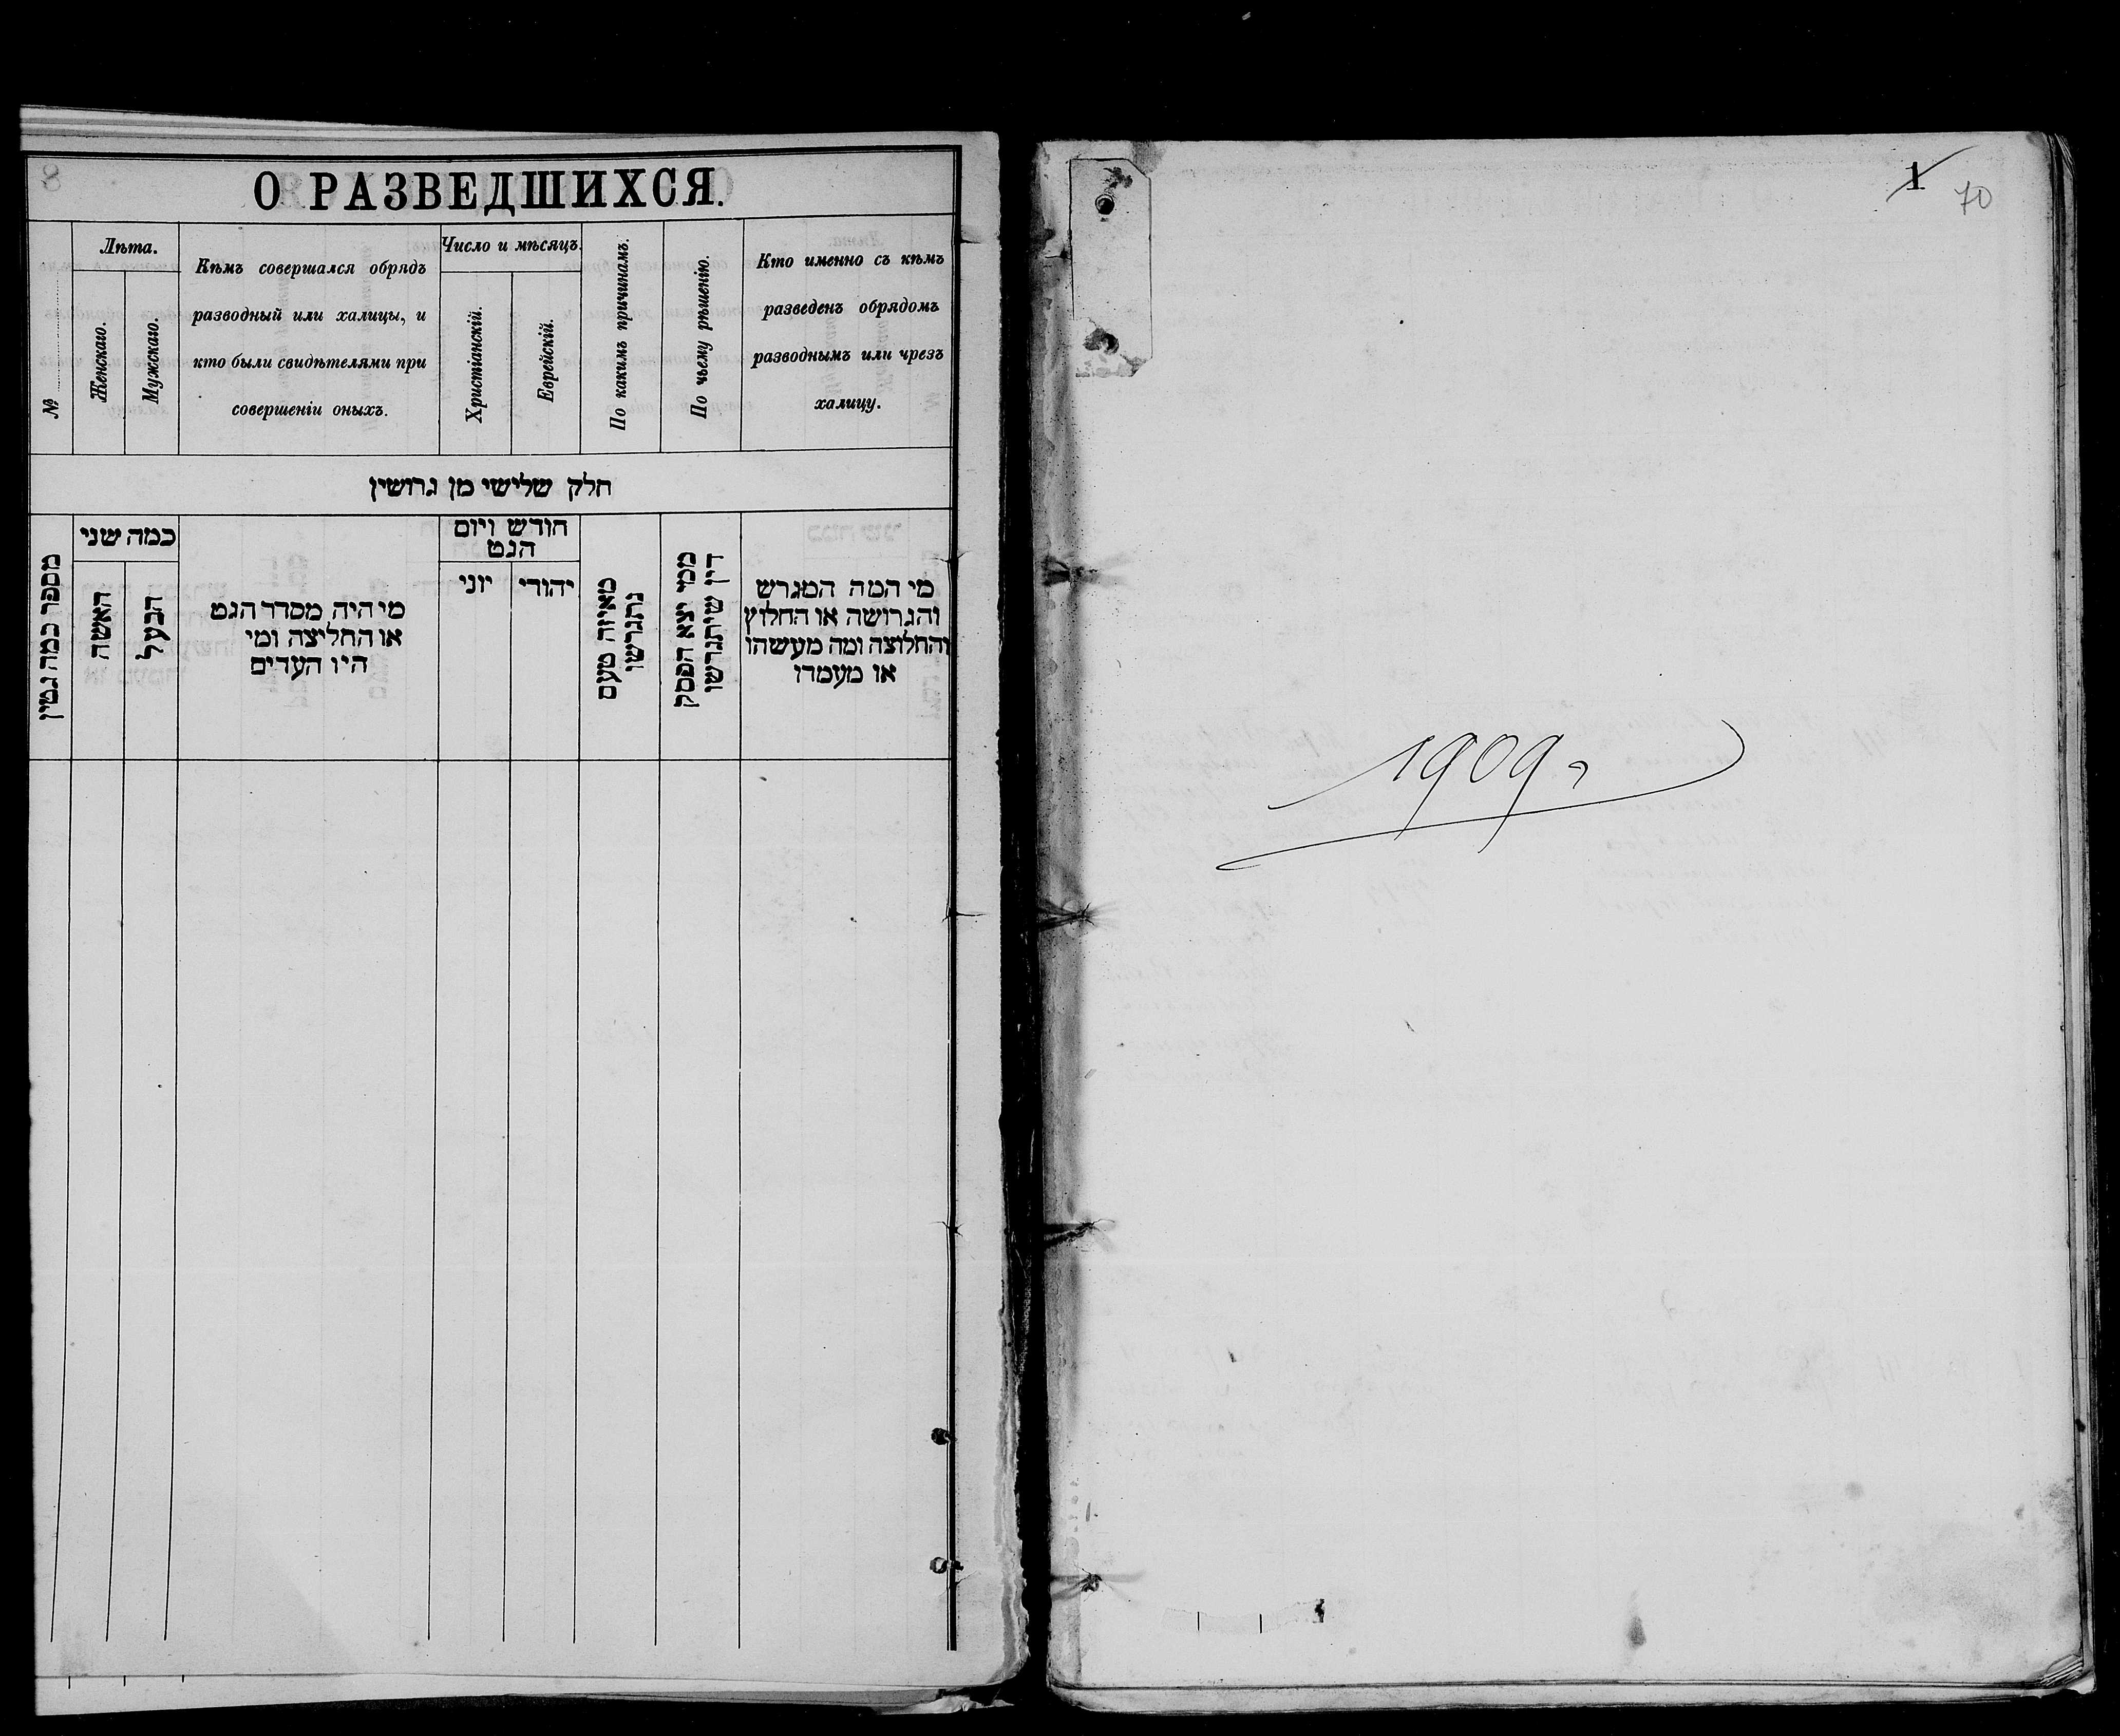 О РАЗВЕДШИХСЯ.
№
Лѣта.
Женскаго.
Мужскаго.
Кѣмъ совершался обрядъ
разводный или халицы, и
кто были свидѣтелями при
совершеніи оныхъ.
Число и мѣсяцъ.
Христіанскій.
Еврейскій.
По какимъ причинамъ.
По чьему рѣшенію.
Кто именно съ кѣмъ
разведенъ обрядомъ
разводнымъ или чрезъ
халицу.
חלק שלישי מן גרושין
מספר כמה גטין
כמה שני
האשה
הבעל
מי היה מסדר הגט
או החליצה ומי
היו העדים
חודש ויום
הגט
יוני
יהודי
מאיזה טעם
נתגרשו
ממי יצא הפסק
דין שיתגרשו
מי המה המגרש
והגרושה או החלוץ
והחלוצה ומה מעשהו
או מעמדו
1
70
1909 г